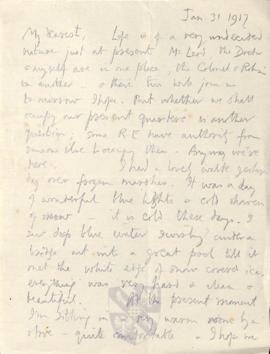 Jan. 31 1917
My dearest, Life is of a very undecided
nature just at present. McLeod the Doctor
& myself are in one place, the Colonel &
in another & there will join us
to morrow I hope. But whether we shall
occupy our present quarters is another
question. Some R E have authority from
someone else to occupy them. Anyway we're
here. I had a lovely walk yester
day over frozen marshes. It was a day
of wonderful blue lights & cold
of snow — it is cold these days. I
saw deep blue water under a
bridge out into a great pool till it
met the white edge of snow covered ice.
everything was very hard & clean &
beautiful. At the present moment
I'm sitting in warm room by a
stove — quite comfortable & I hope we